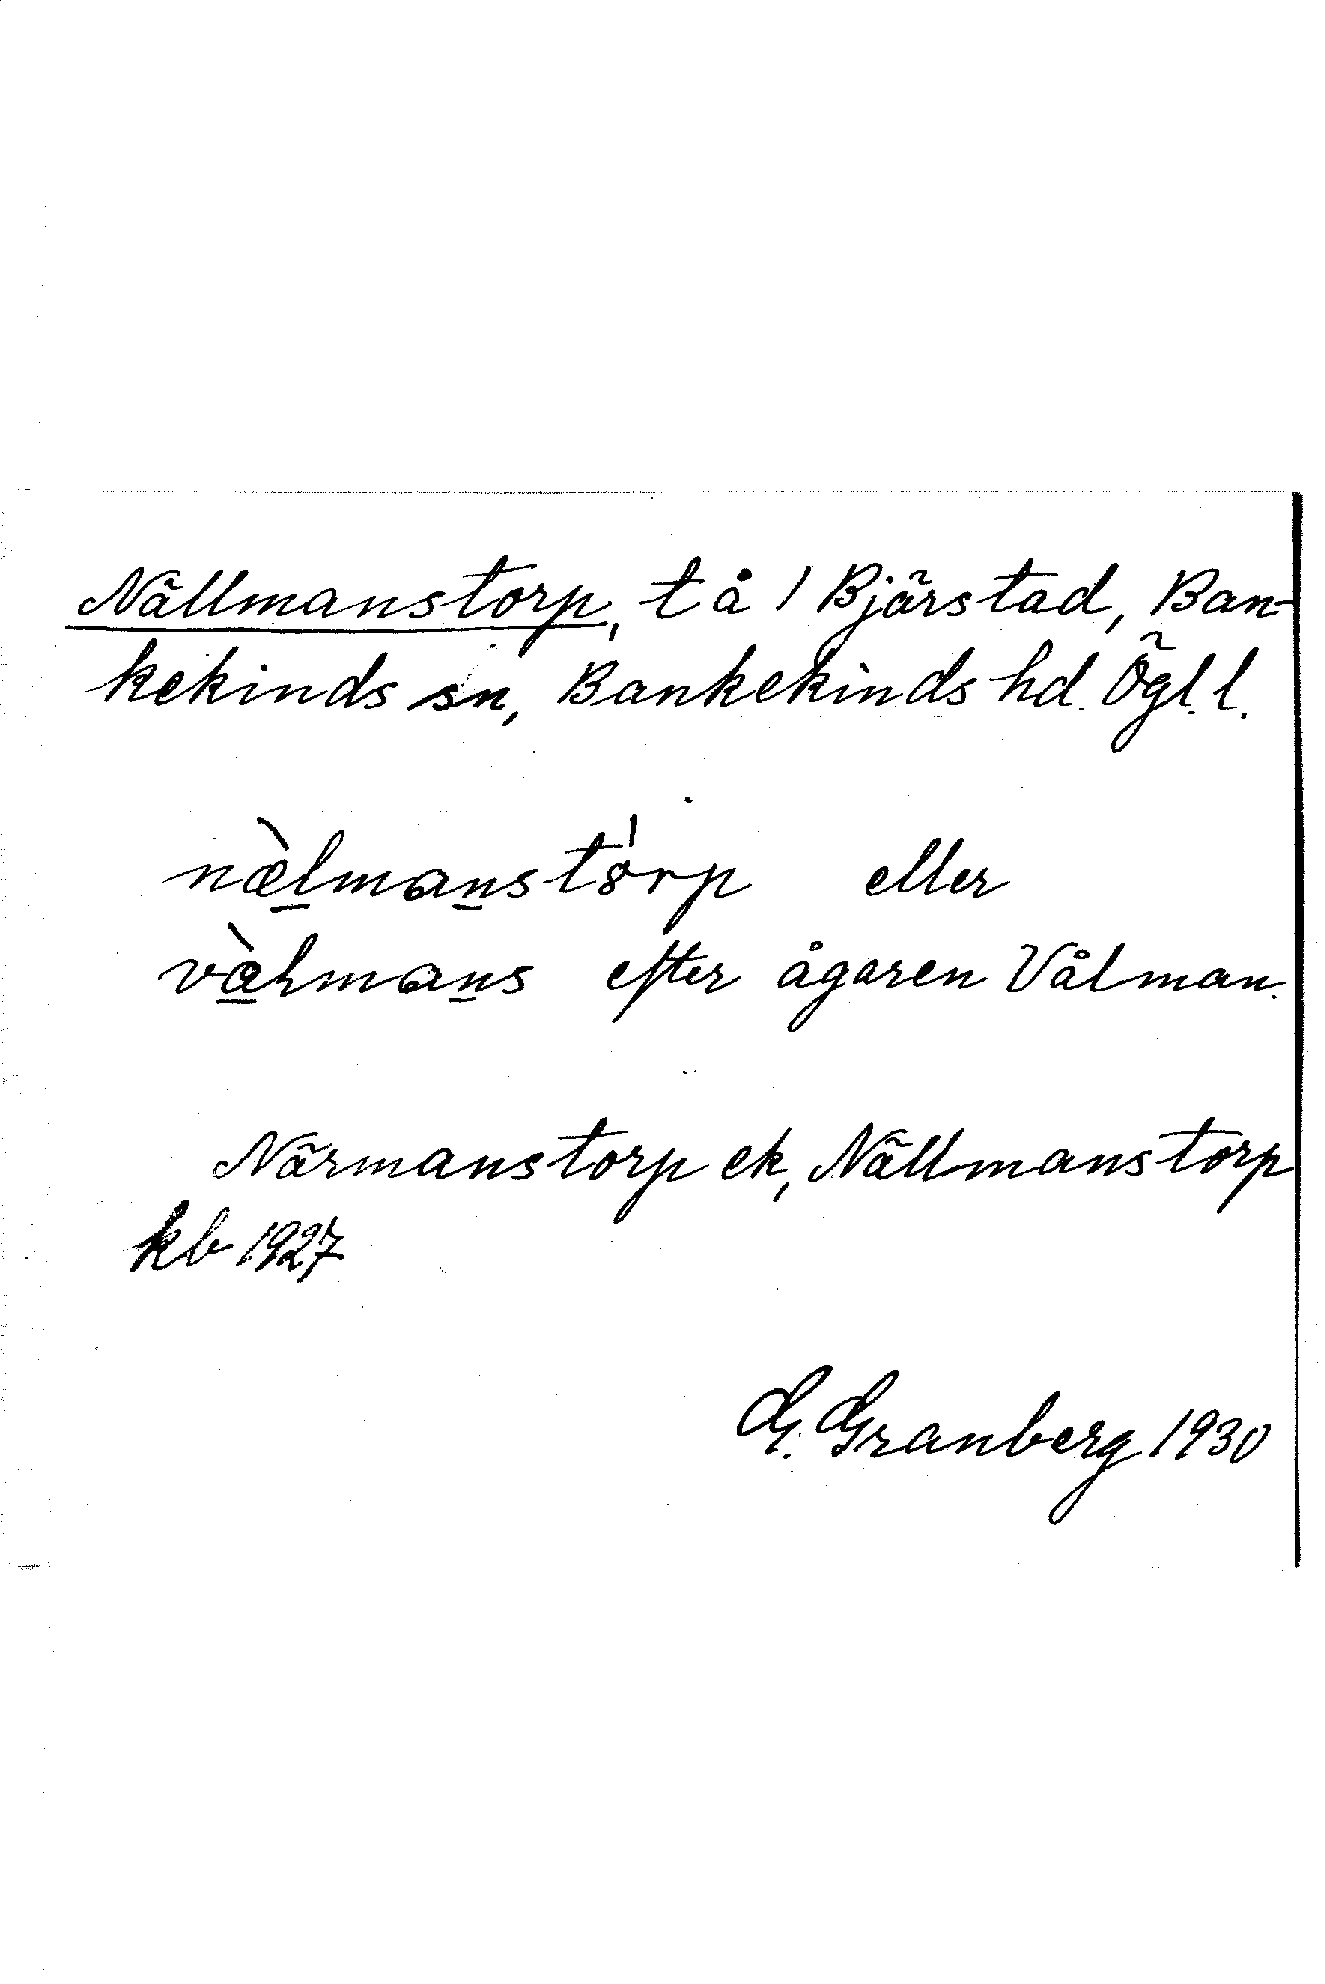 Nällmanstorp, t å 1 Bjärstad, Ban-
kekinds sn, Bankekinds hd. Ögl. l.
næ̀lmanstórp eller
væ̀hmans efter ågaren Vålman.
Närmanstorp ek, Nällmanstorp
kb 1927
G. Granberg 1930